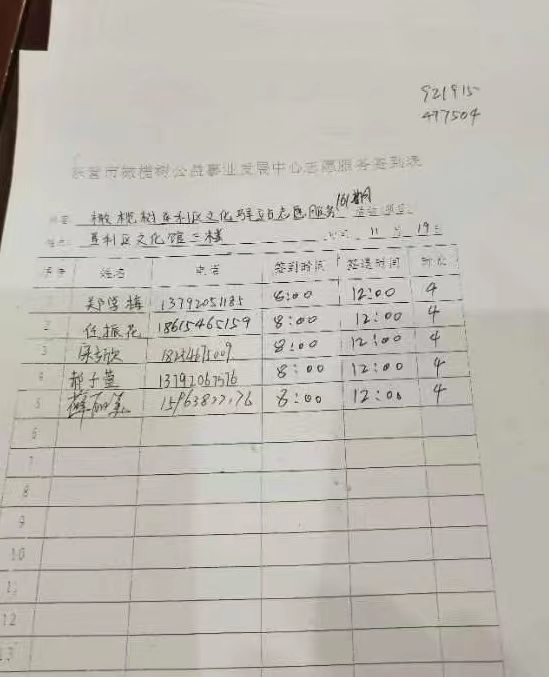 921915
497504
东营市橄榄树公益事业发展中心志愿服务签到表
橄榄树垦利区文化驿站志愿服务161期
垦利区文化馆二楼 11月19日
序号 姓名 电话 签到时间 签退时间 时长
1 郑学梅 13792051185 8:00 12:00 4
2 任振花 18615465159 8:00 12:00 4
3 8:00 12:00 4
4 郝子萱 13792067576 8:00 12:00 4
5 薛丽 8:00 12:00 4
6
7
8
9
10
11
12
13